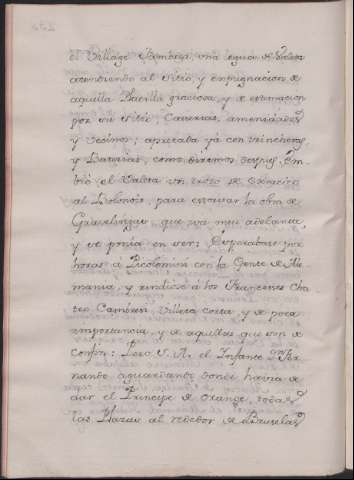 el Village Sambrea, una legua de Valen
atendiendo al sitio, y expugnacion de
aquella Placilla graciosa, y de estimacion
por su sitio, Caserias, amenidades
y vecinos; apretada ya con trincheras,
y Baterias, como diremos despues, Em-
bió el Valeta un trozo de Exercito
al Bolonois, para estorvar la obra de
Gravelingas, que iva mui adelante,
y se ponia en ser; Esperabase por
horas á Picolomini con la Gente de Ale
mania, y rindiose a los Franceses Cha-
teo Cambresi, Villeta corta, y de poca
importancia, y de aquellas que son de
confin: Pero S. A. el Infante Dn. Fer-
nando aguardando donde havia de
dar el Principe de Orange, todas
las Plazas al rededor de Bruselas